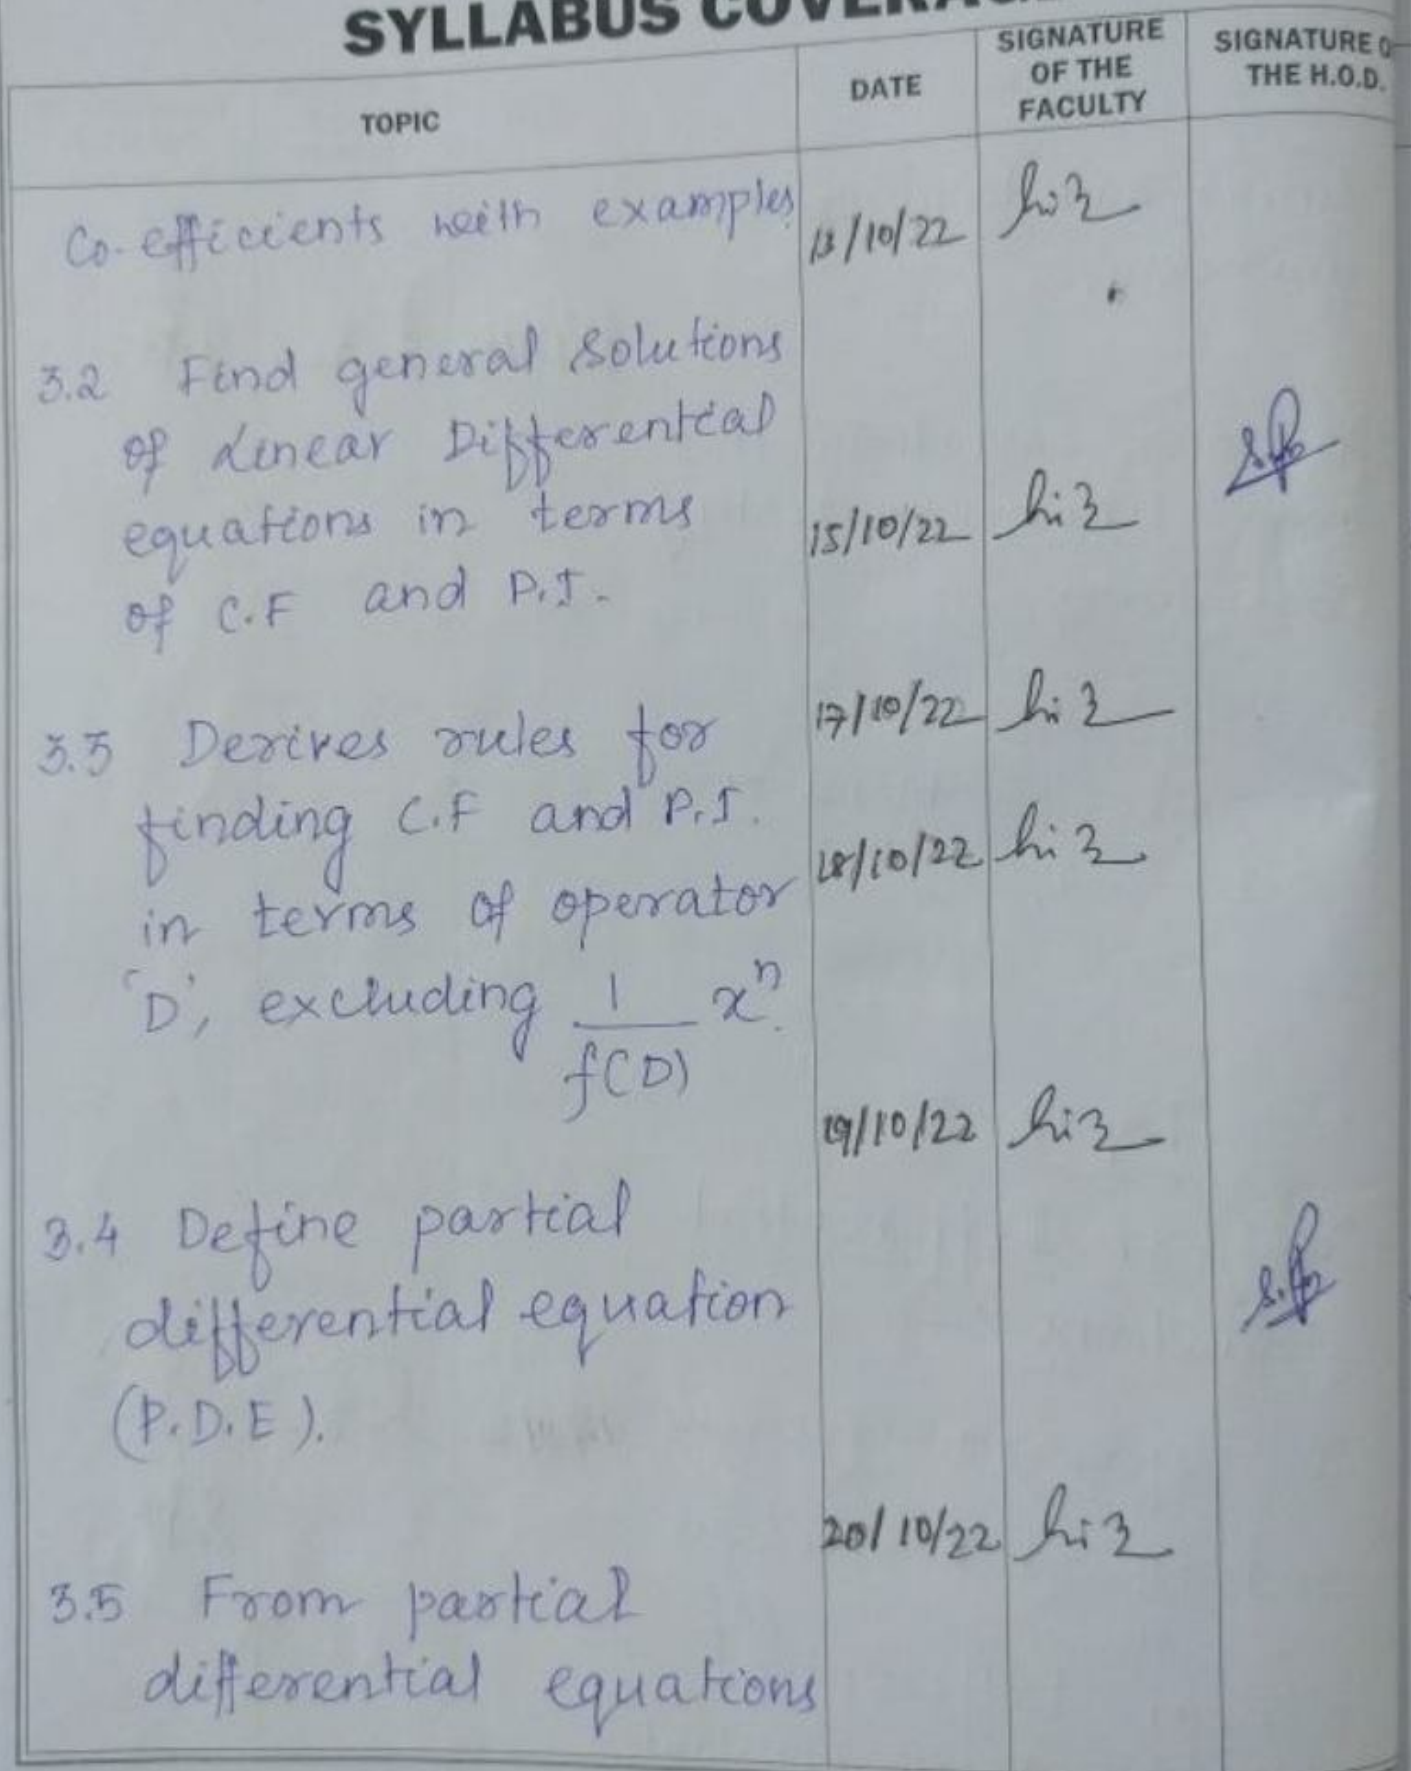 SYLLABUS COVERAG
TOPIC
DATE
SIGNATURE
OF THE
FACULTY
SIGNATURE O
THE H.O.D.
Co-efficients with examples
13/10/22
3.2 Find general Solutions
of Linear Differential
equations in terms
15/10/22
of C.F and P.I.
17/10/22
3.3 Derives rules for
finding C.F and P.I.
18/10/22
in terms of operator
'D', excluding 1/f(D) xⁿ.
19/10/22
3.4 Define partial
differential equation
(P.D.E).
20/10/22
3.5 From partial
differential equations